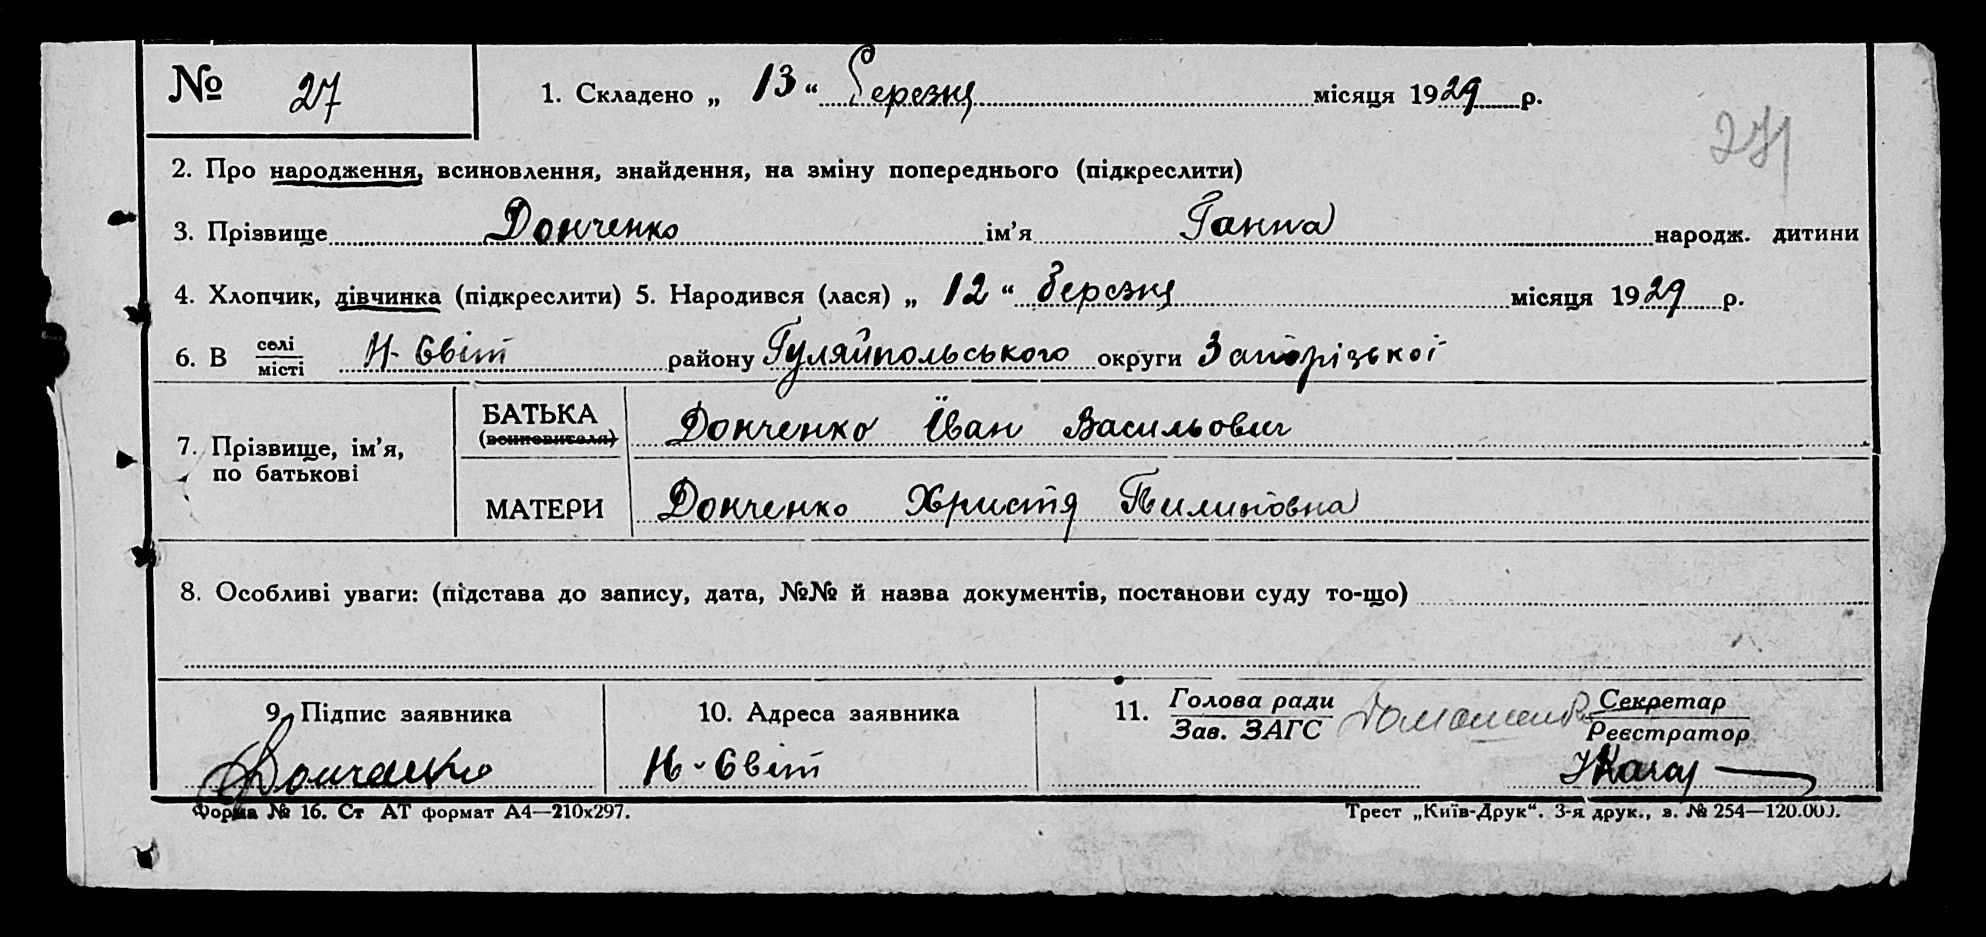 № 27 1. Складено „ 13 “ березня місяця 1929 р.
271
2. Про народження, всиновлення, знайдення, на зміну попереднього (підкреслити)
3. Прізвище Донченко ім’я Ганна народж. дитини
4. Хлопчик, дівчинка (підкреслити) 5. Народився (лася) „ 12 “ березня місяця 1929 р.
6. В селі/місті Н-Світ району Гуляйпольського округи Запорізької
7. Прізвище, ім’я, по батькові
БАТЬКА (всиновителя) Донченко Іван Васильович
МАТЕРИ Донченко Христя Пилиповна
8. Особливі уваги: (підстава до запису, дата, №№ й назва документів, постанови суду то-що)
9. Підпис заявника 10. Адреса заявника 11. Голова ради / Зав. ЗАГС Секретар / Реєстратор
Донченко Н-Світ
Форма № 16. Ст АТ формат А4—210х297. Трест „Київ-Друк“. 3-я друк., з. № 254—120.000.